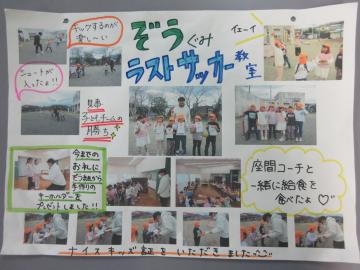 キックするのが
楽し〜い
ぞうぐみ
イェーイ
ラストサッカー教室
シュートが
入ったよ!!
見事
子どもチームの
勝ち☆
今までの
お礼に
ぞう組から
手作りの
キーホルダーを
プレゼントしました!!
座間コーチと
一緒に給食を
食べたよ♡
ナイスキッズ証をいただきました